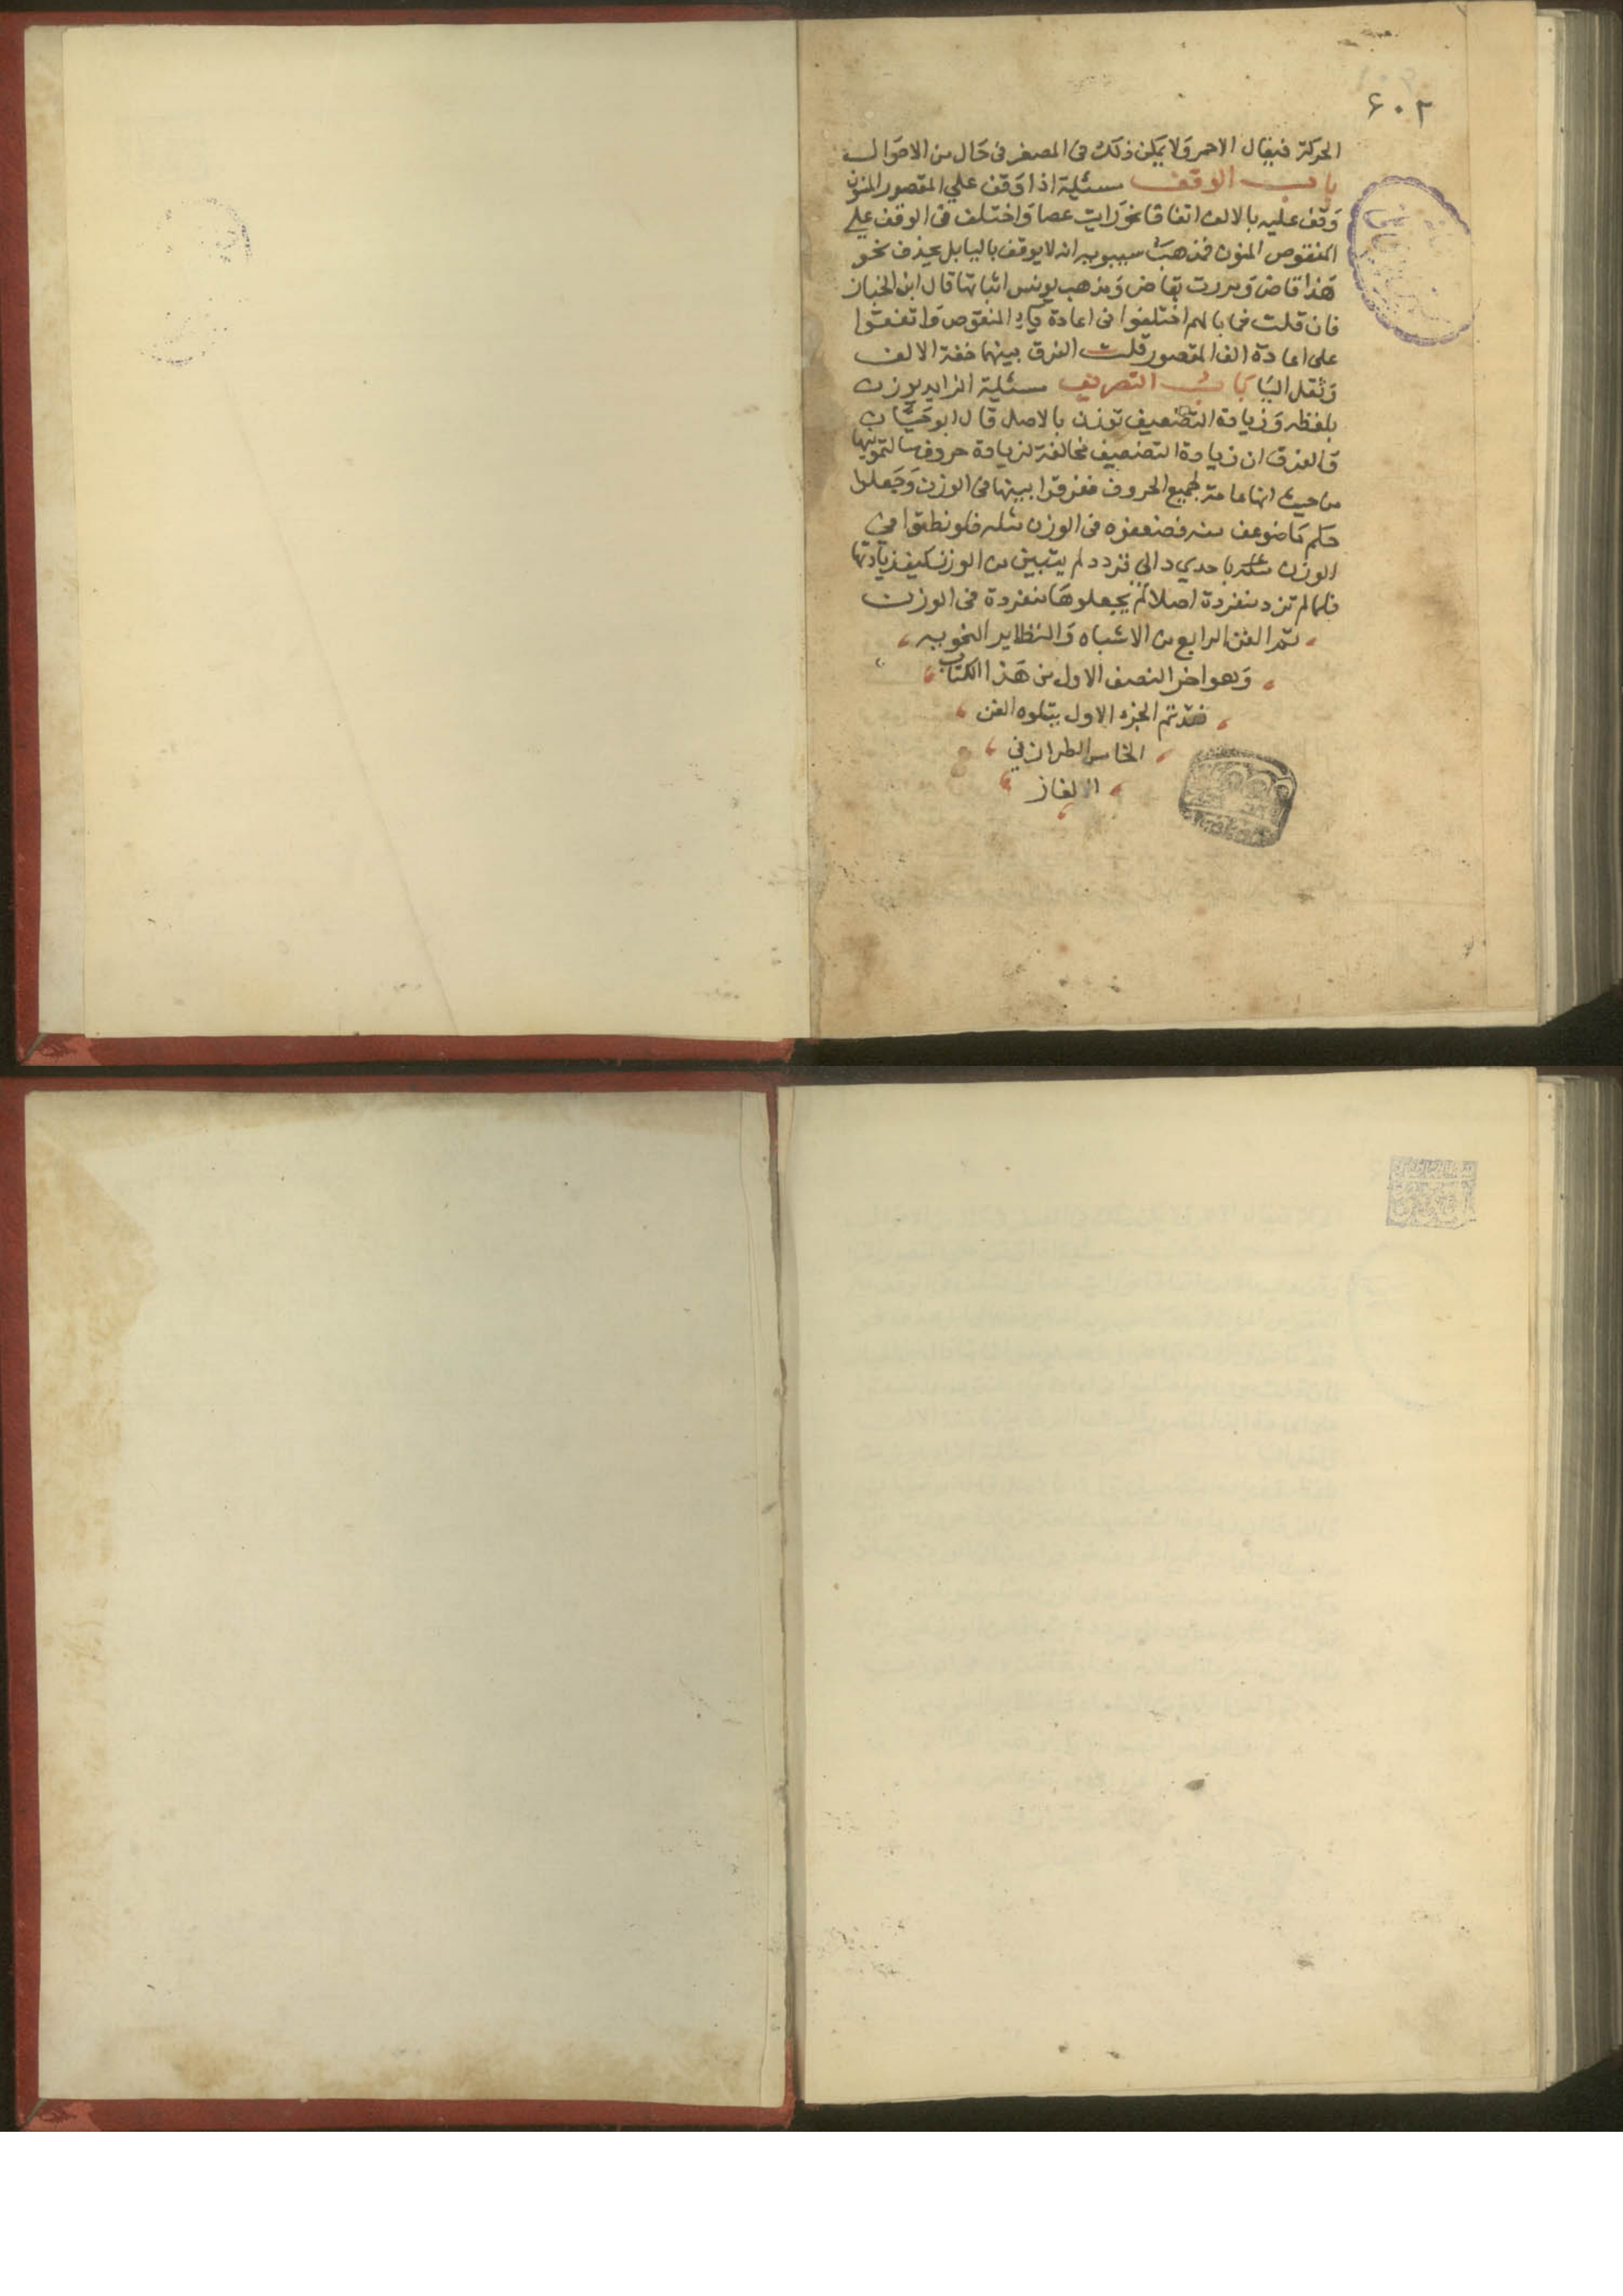 ٦٠٢
الحركة فيقال الاحمر ولا يمكن ذلك في المصغر في حال من الاحوال
باب الوقف مسئلة اذا وقف علي المقصور المنون
وقف عليه بالالف اتفاقا نحو رايت عصا واختلف في الوقف علي
المنقوص المنون فمذهب سيبويه انه لا يوقف باليا بل بحذف نحو
هذا قاض ومررت بقاض ومذهب يونس اثباتها قال ابن الخباز
فان قلت فما بالهم اختلفوا في اعادة ياء المنقوص واتفقوا
على اعادة الف المقصور قلت الفرق بينهما خفة الالف
وثقل اليا باب التصريف مسئلة الزايد يوزن
بلفظه وزيادة التضعيف توزن بالاصل قال ابو حيان
والفرق ان زيادة التضعيف مخالفة لزيادة حروف سالتمونيها
من حيث انها عامة لجميع الحروف ففرقوا بينها في الوزن وجعلوا
حكم ما ضوعف منه فضعفوه في الوزن مثله فلو نطقوا في
الوزن باحدي دالي قردد لم يتبين من الوزن كيف زيادتها
فلما لم تزد منفردة اصلا لم يجعلوها منفردة في الوزن
تم الفن الرابع من الاشباه والنظاير النحويه
وهو اخر النصف الاول من هذا الكتاب
قد تم الجزء الاول يتلوه الفن
الخامس الطراز في
الالغاز